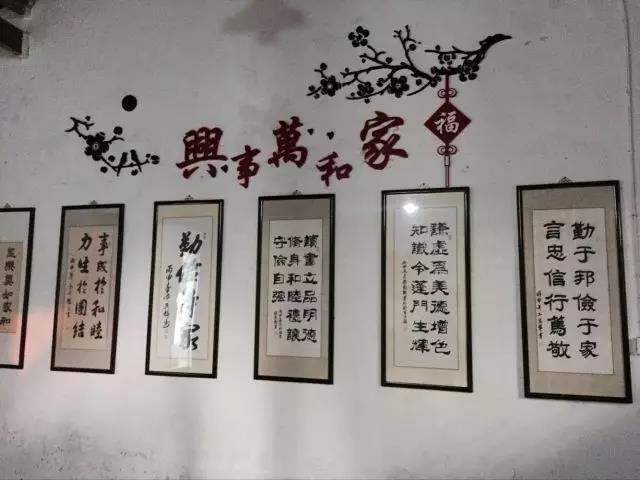 家和萬事興
福
勤于邦儉于家
言忠信行篤敬
謙虛為美德增色
知識令蓬門生輝
讀書立品明德
脩身和睦禮讓
守儉自强
勤儉傳家
事成於和睦
力生於團結
莫如和